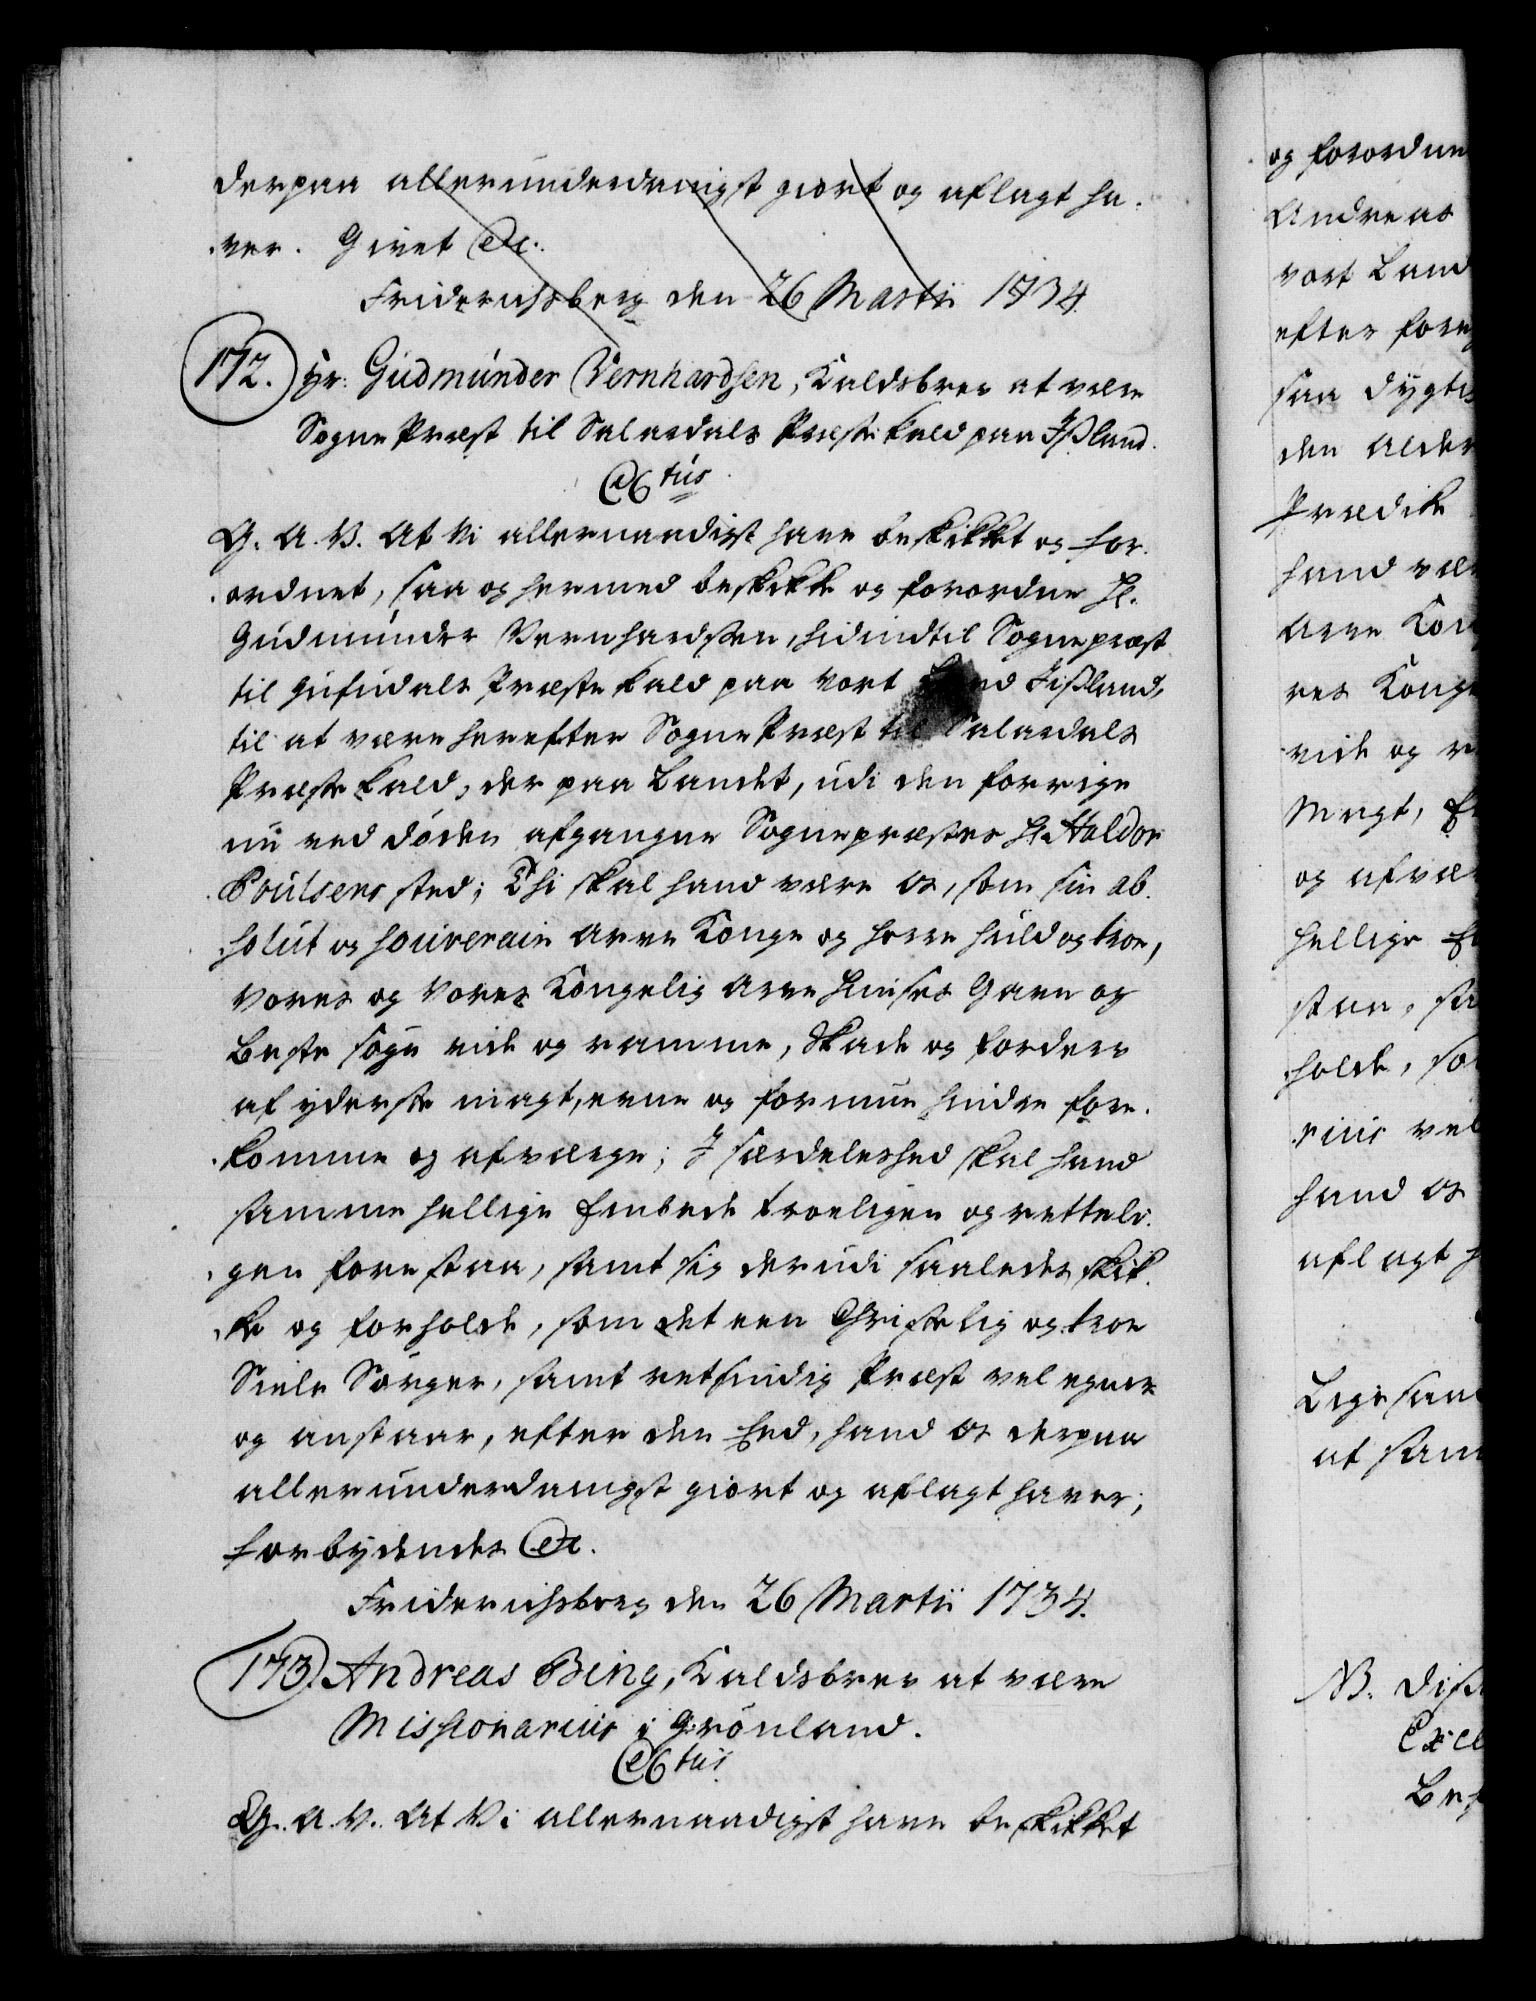 derpaa allerunderdanigst giort og aflagt ha-
ver. Givet etc.
Friderichsberg den 26 Martii 1734.
172. Hr: Gudmunder Bernhardsen, Kaldsbrev at være
Sogne Præst til Selaedals Præstekald paa Ißland.
C6tus
G. A. V. At Vi allernaadigst have beskikket og for-
ordnet, saa og hermed beskikke og forordne Hr.
Gudmunder Bernhardsen, hidindtil Sognepræst
til Gufudals Præste kald paa Vort Land Jißland,
til at være herefter Sogne Præst til Selaedals
Præste kald, der paa Landet, udi den forrige
nu ved døden afgangne Sognepræstes Hr. Haldor
Poulsens sted; Thi skal hand være os, som sin ab-
solut og souverain Arve Konge og Herre huld og troe,
Vores og Vores Kongelig Arve Huuses Gavn og
Beste søge vide og ramme, Skade og fordærv
af yderste magt, evne og formue hindre fore-
komme og afværge; J særdeleshed skal hand
samme hellige Embede troeligen og retteli-
gen forestaa, samt sig derudi saaledes skik-
ke og forholde, som det een Christelig og troe
Siele Sørger, samt retsindig Præst vel egner
og anstaar, efter den Eed, hand os derpaa
allerunderdanigst giort og aflagt haver;
forbydendes etc.
Friderichsberg den 26 Martii 1734.
173. Andreas Bing, Kaldsbrev at være
Missionarius i Grønland.
C6tus
G. A. V. At Vi allernaadigst have beskikket
og forordne
Andreas
vort Land
efter
saa dygti
den Alder
Prædike
hand vær
Arve Kon
res Konge
vide og
Magt,
og afvær
hellige
staa,
holde,
rius vel
hand os
aflagt
Lige saa
at sam
NB.
Excel